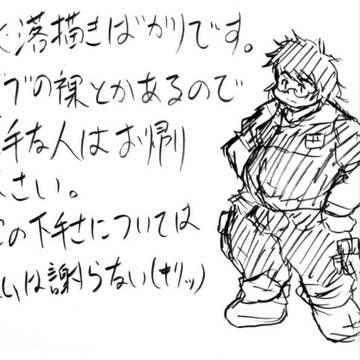 落描きばかりです。
ブの裸とかあるので
手な人はお帰り
さい。
の下手さについては
は謝らない(キリッ)